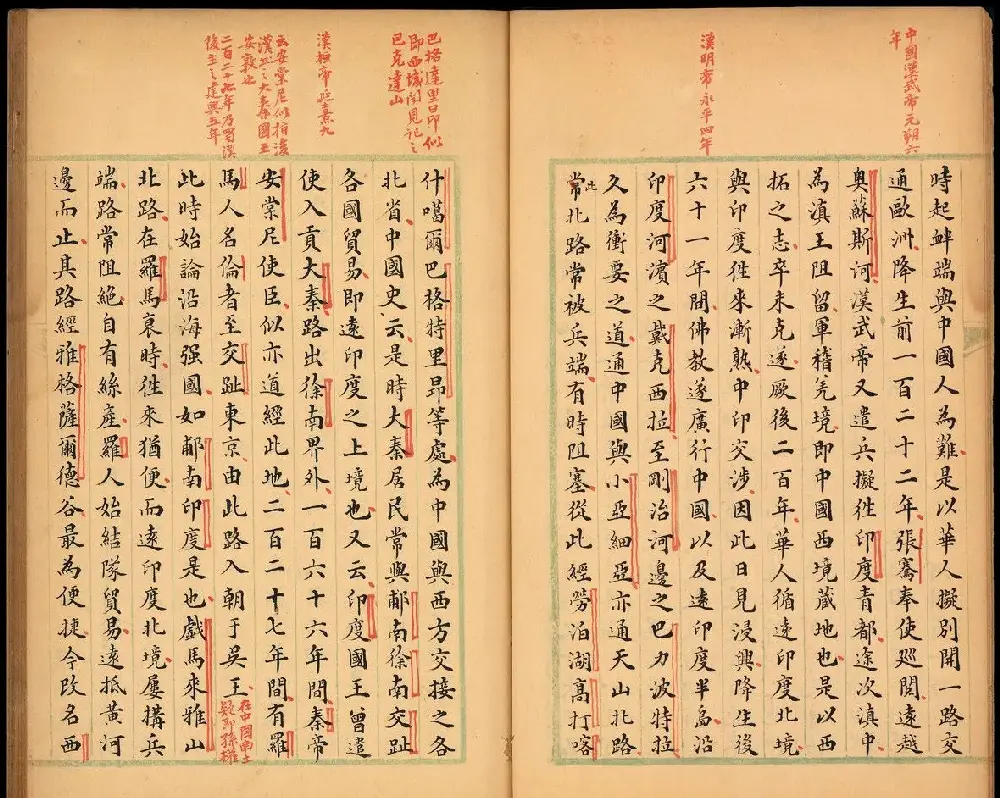 中國漢武帝元朔六
年
漢明帝永平四年
時起衅端與中國人為難是以華人擬別開一路交
通歐洲降生前一百二十二年張騫奉使廵閱遠越
奧蘇斯河漢武帝又遣兵擬徃印度青都途次滇中
為滇王阻留軍稽羌境即中國西境藏地也是以西
拓之志卒未克遂厥後二百年華人循遠印度北境
與印度徃來漸熟中印交涉因此日見浸興降生後
六十一年間佛教遂廣行中國以及遠印度半島沿
印度河濱之戴克西拉至剛冶河邊之巴力波特拉
久為衝要之道通中國與小亞細亞亦通天山北路
常此北路常被兵端有時阻塞從此經勞泊湖髙打喀
巴格達里昂即似
即西域聞見記之
巴克達山
漢桓帝延熹九
安棠尼似指後
漢書之大秦國王
安敦也
二百二十七年乃蜀漢
後主之建興五年
什噶爾巴格特里昂等處為中國與西方交接之各
北省中國史云是時大秦居民常與鄬南徐南交趾
各國貿易即遠印度之上境也又云印度國王曾遣
使入貢大秦路出徐南界外一百六十六年間秦帝
安棠尼使臣似亦道經此地二百二十七年間有羅
馬人名倫者至交趾東京由此路入朝于吳王
在中國南土
疑即孫權
此時始論沿海强國如鄬南印度是也戲馬來雅山
北路在羅馬衰時徃來猶便而遠印度北境屢搆兵
端路常阻絕自有絲產羅人始結隊貿易遠抵黃河
邊而止其路經雅格薩爾德谷最為便捷今改名西